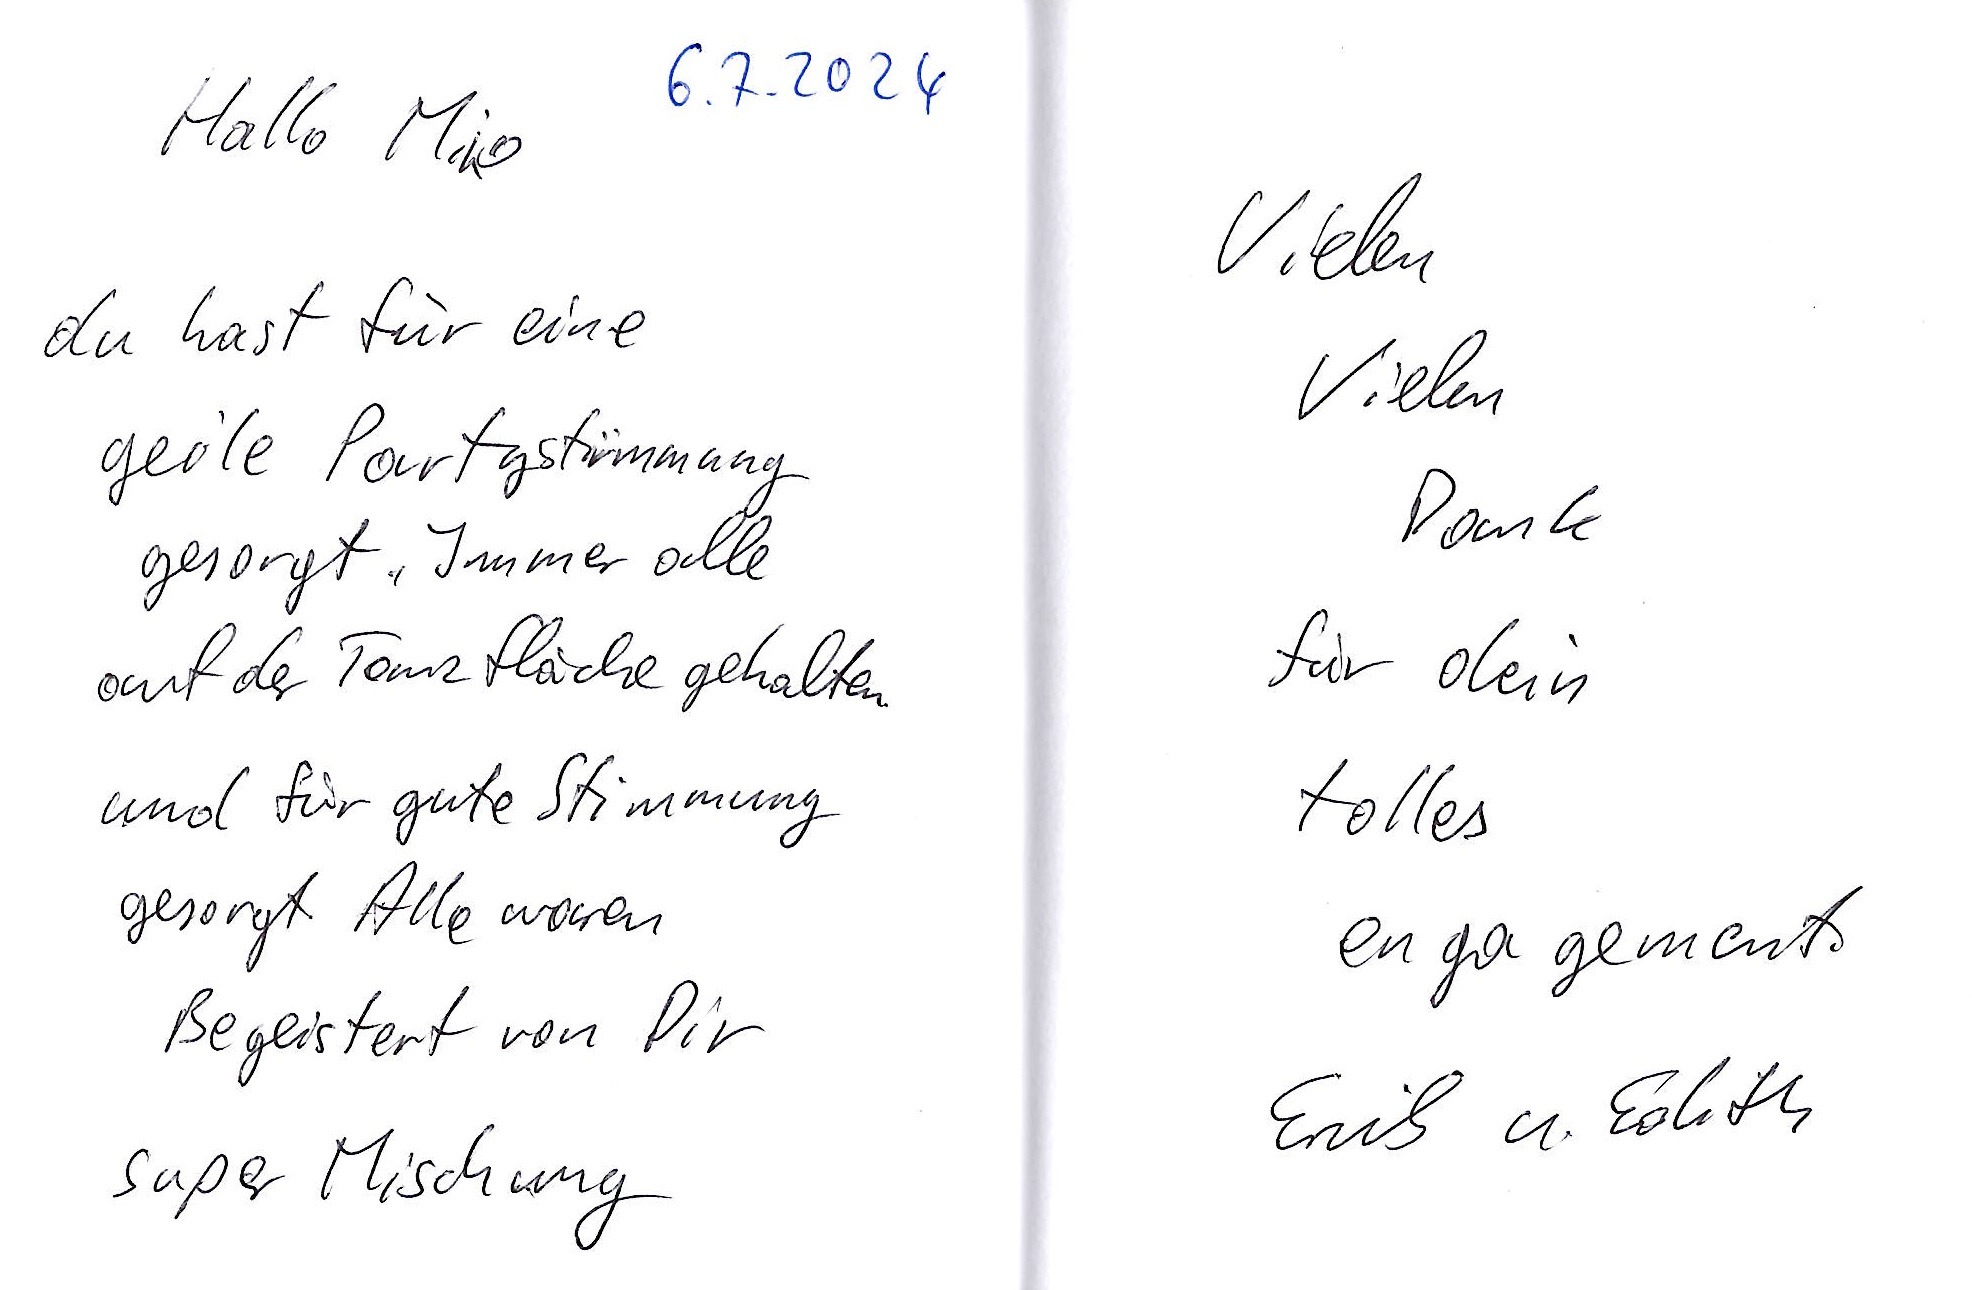 6.7.2024
Hallo
du hast für eine
geile Partystimmung
gesorgt. Immer alle
auf der Tanzfläche gehalten.
und für gute Stimmung
gesorgt Alle waren
Begeistert von Dir
super Mischung
Vielen
Vielen
Dank
für dein
tolles
engagement.
u. Edith